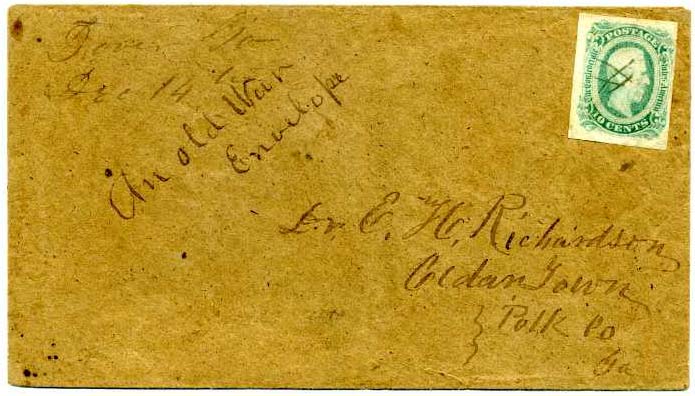 Dec 14
An old War
Envelope
Dr. E. H. Richardson
Cedar Town
Polk Co
Ga
POSTAGE
Confederate
States America
10 CENTS